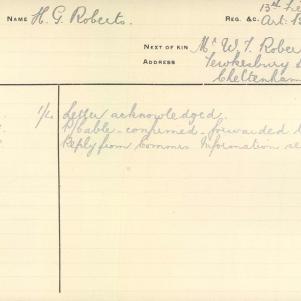 NAME H. G. Roberts. REG. &C. 13th
Art. B
NEXT OF KIN Mr W. T. Rober
ADDRESS Tewkesbury
Cheltenham
1/Lr. Letter acknowledged.
Cable confirmed forwarded
Reply from Commrs Information re